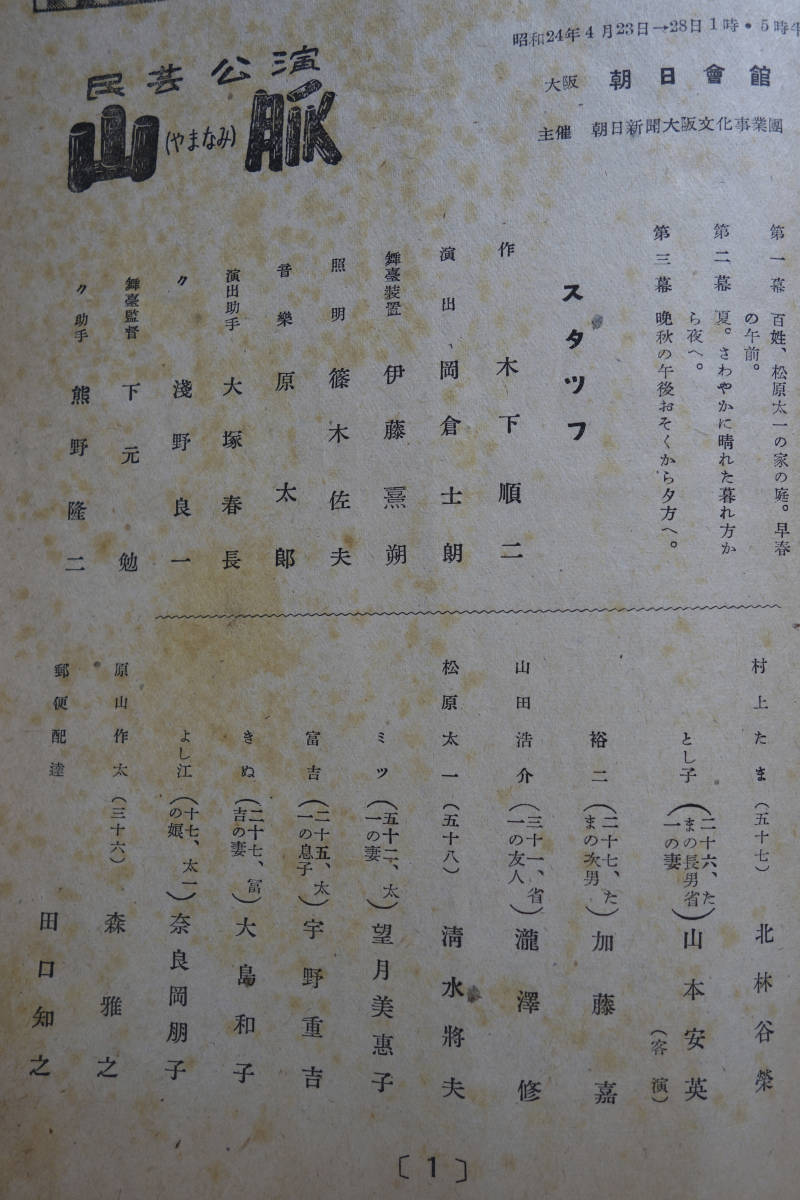 昭和24年4月23日→28日1時・5時半
大阪 朝日會館
主催 朝日新聞大阪文化事業團
民芸公演
山脈
(やまなみ)
第一幕 百姓、松原太一の家の庭。早春
の午前。
第二幕 夏。さわやかに晴れた暮れ方か
ら夜へ。
第三幕 晩秋の午後おそくから夕方へ。
スタツフ
作 木下順二
演出 岡倉士朗
舞臺装置 伊藤熹朔
照明 篠木佐夫
音樂 原太郎
演出助手 大塚春長
〃 淺野良一
舞臺監督 下元勉
〃助手 熊野隆二
村上たま(五十七) 北林谷榮
とし子(二十六、た
まの長男省
一の妻) 山本安英
(客演)
裕二(二十七、た
まの次男) 加藤嘉
山田浩介(三十一、省
一の友人) 瀧澤修
松原太一(五十八) 清水將夫
ミツ(五十二、太
一の妻) 望月美惠子
富吉(二十五、太
一の息子) 宇野重吉
きぬ(二十七、富
吉の妻) 大島和子
よし江(十七、太一
の娘) 奈良岡朋子
原山作太(三十六) 森雅之
郵便配達 田口知之
〔1〕